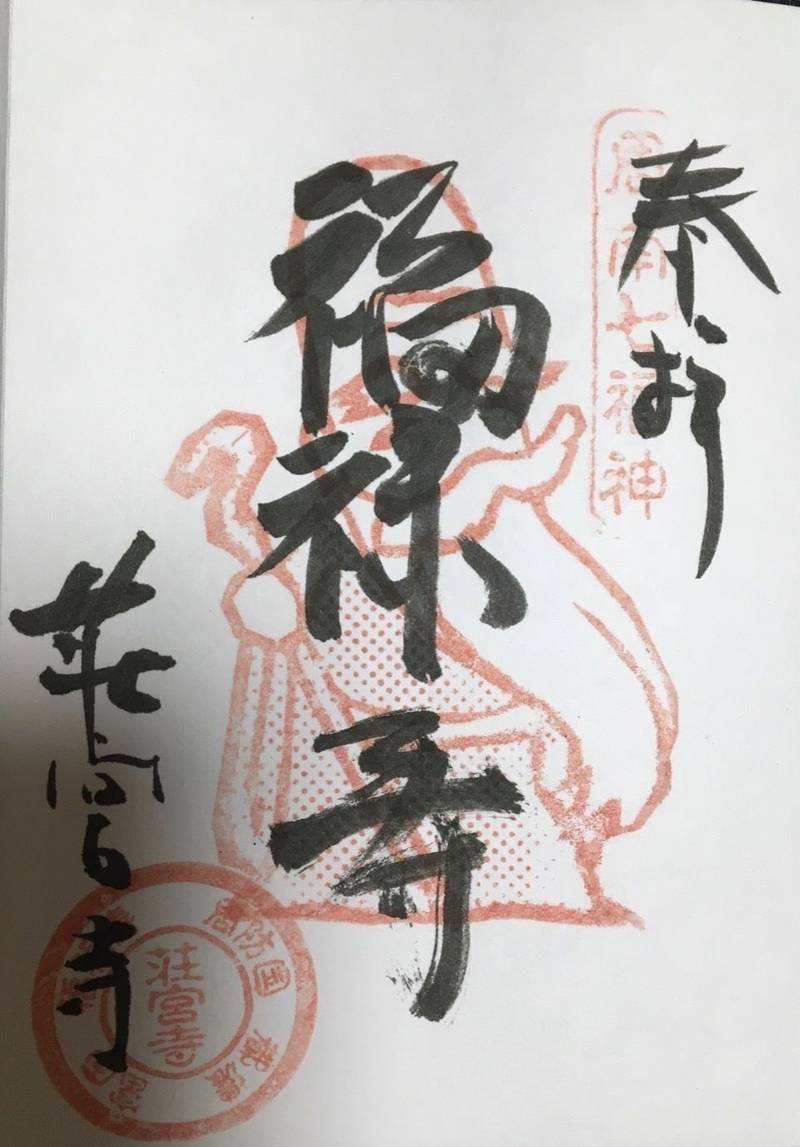 奉拝
周南七福神
福禄寿
莊宮寺
周防国
莊宮寺